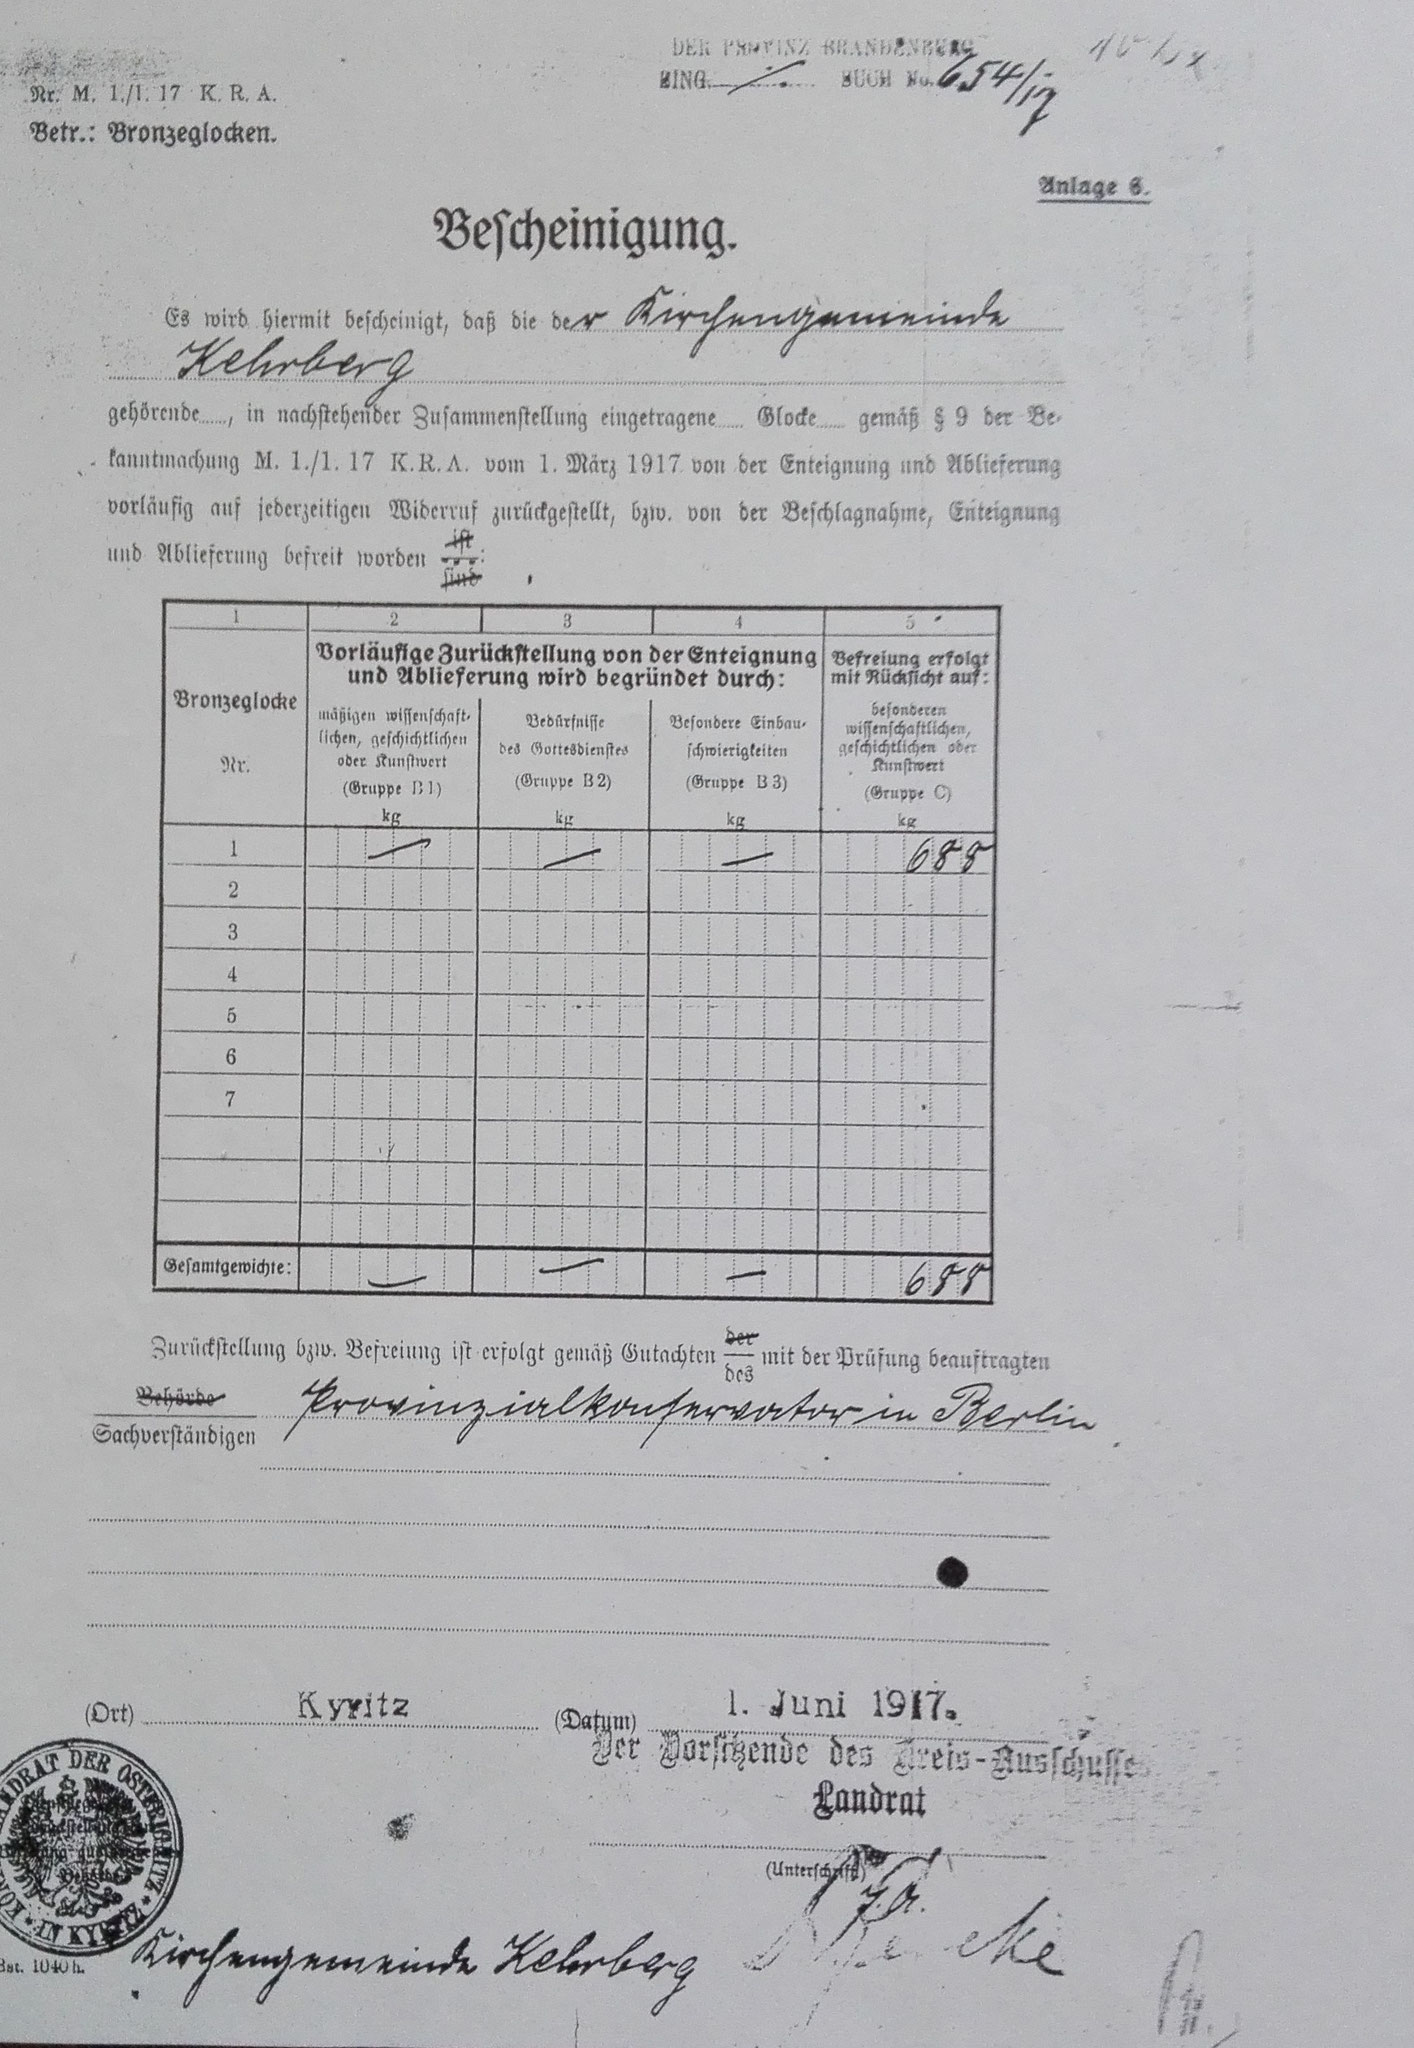 DER PROVINZ BRANDENBURG
EING. BUCH No. 654/17
Nr. M. 1./1. 17 K. R. A.
Betr.: Bronzeglocken.
Anlage 6.
Bescheinigung.
Es wird hiermit bescheinigt, daß die der Kirchengemeinde
Kehrberg
gehörende......, in nachstehender Zusammenstellung eingetragene...... Glocke...... gemäß § 9 der Be-
kanntmachung M. 1./1. 17 K. R. A. vom 1. März 1917 von der Enteignung und Ablieferung
vorläufig auf jederzeitigen Widerruf zurückgestellt, bzw. von der Beschlagnahme, Enteignung
und Ablieferung befreit worden ist
sind :
1 2 3 4 5
Bronzeglocke
Nr.
Vorläufige Zurückstellung von der Enteignung
und Ablieferung wird begründet durch:
Befreiung erfolgt
mit Rücksicht auf:
mäßigen wissenschaft-
lichen, geschichtlichen
oder Kunstwert
(Gruppe B 1)
kg
Bedürfnisse
des Gottesdienstes
(Gruppe B 2)
kg
Besondere Einbau-
schwierigkeiten
(Gruppe B 3)
kg
besonderen
wissenschaftlichen,
geschichtlichen oder
Kunstwert
(Gruppe C)
kg
1 — — — 688
2
3
4
5
6
7
Gesamtgewichte: — — — 688
Zurückstellung bzw. Befreiung ist erfolgt gemäß Gutachten der
des mit der Prüfung beauftragten
Behörde
Sachverständigen Provinzialkonservator in Berlin
(Ort) Kyritz (Datum) 1. Juni 1917.
Der Vorsitzende des Kreis-Ausschusses
Landrat
(Unterschrift)
J. A.
LANDRAT DER OSTPRIGNITZ
IN KYRITZ
Kirchengemeinde Kehrberg
Bst. 1040 h.